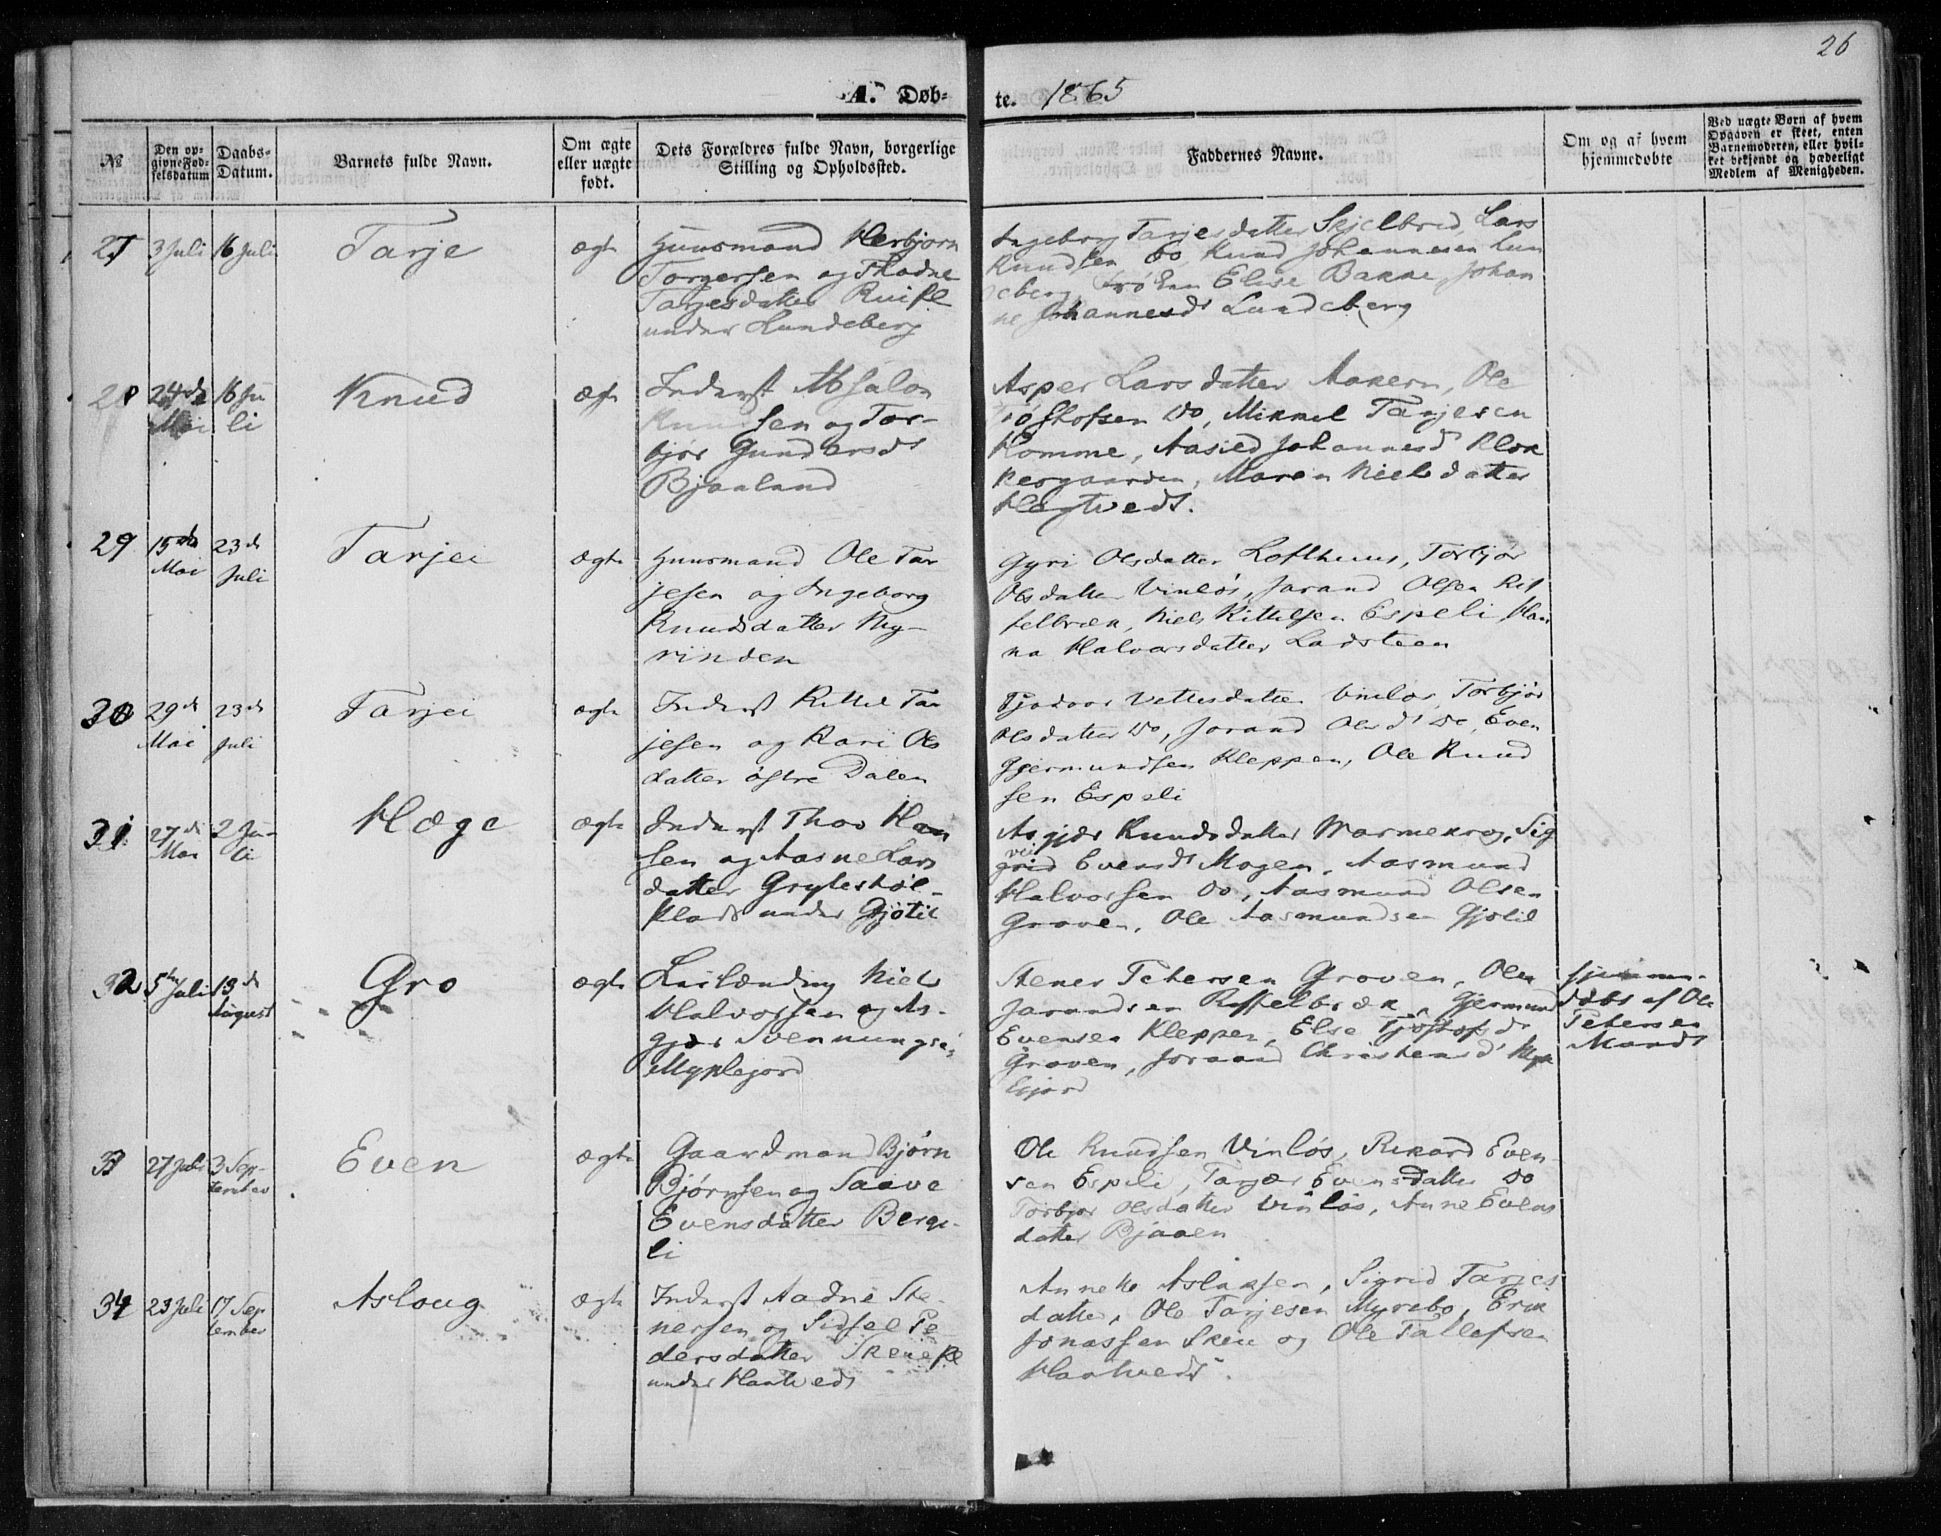 26
A. Døb-
te. 1865
№
Den op-
givne Fød-
selsdatum
Daabs-
Datum.
Barnets fulde Navn.
Om ægte
eller uægte
født.
Dets Forældres fulde Navn, borgerlige
Stilling og Opholdssted.
Faddernes Navne.
Om og af hvem
hjemmedøbte
Ved uægte Børn af hvem
Opgaven er skeet, enten
Barnemoderen, eller hvil-
ket bekjendt og hæderligt
Medlem af Menigheden.
27
3 Juli
16 Juli
Tarje
ægte
Huusmand Herbjørn
Torgersen og Thodne
Tarjesdatter
under Lundeberg
Ingeborg Tarjesdatter Skjelbred, Lars
Knudsen Do, Knud Johannesen Lun
deberg, Frøken Elise Bakke, Johan
ne Johannesd Lundeberg
28
24de
Mai
16 Ju
li
Knud
ægte
Inderst Absalon
Knudsen og Tor-
bjør Gundersd
Bjaaland
Asper Larsdatter Aakern, Ole
Tjøstolfsen Do, Mikkel Tarjesen
Komme, Aasied Johannesd Klok
kergaarden, Maren Nielsdatter
Hegtvedt.
29
15de
Mai
23d
Juli
Tarjei
ægte
Huusmand Ole Tar
jesen og Ingeborg
Knudsdatter My-
rinden
Gyri Olsdatter Lofthuus, Torbjør
Olsdatter Vinløs, Jorand Olsen Raf
felbræk, Niels Kittelsen Espeli, Han
na Halvorsdatter Ladsteen
30
29d
Mai
23d
Juli
Tarjei
ægte
Inderst Kittel Tar
jesen og Kari Ols
datter østre Dalen
Tjodvor Vettesdatter Vinløs, Torbjør
Olsdatter Do, Jorand Olsd Do, Even
Gjermundsen Kleppen, Ole Knud
sen Espeli
31
27di
Mai
2 Ju-
li
Hæge
ægte
Inderst Thov Han
sen og Aasne Lars
datter Grytestøl-
Plads under Gjøtil
Asgjær Knudsdatter Warmekrog, Sig
vei
grid Evensd Mogen, Aasmund
Halvorsen Do, Aasmund Olsen
Groven, Ole Aasmundsen Gjøtil
32
5te Juli
13d
August
Gro
ægte
Leilænding Niels
Halvorsen og As-
gjær Svennungsd,
Myklejord
Stener Petersen Groven, Ole
Jorandsen Raffelbræk, Gjermund
Evensen Kleppen, Else Tjøstofsd
Groven, Joraand Christensd Myk
lejord
hjemme-
døbt af Ole
Petersen
Mandt
33
27 Juli
3 Sep-
tember
Even
ægte
Gaardmand Bjørn
Bjørnsen og Saave
Evensdatter Berge-
li
Ole Knudsen Vinløs, Rikard Even
sen Espeli, Targjer Evensdatter Do
Torbjør Olsdatter Vinløs, Anne Evens
datter Bjaaen
34
23 Juli
17 Sep-
tember
Asloug
ægte
Inderst Aadne Ste-
nersen og Sidsel Pe
dersdatter Skeie Pl
under Haatvedt
Annette Aslaksen, Sigrid Tarjes
datter, Ole Tarjesen Myrebø, Erik
Jonassen Skeie og Ole Tallefsen
Haatvedt.